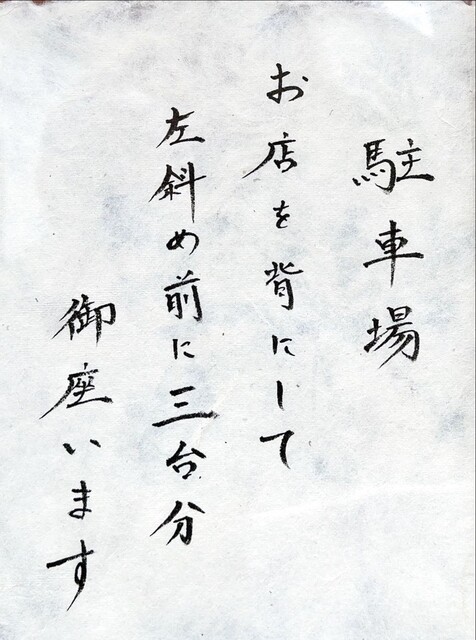 駐車場
お店を背にして
左斜め前に三台分
御座います